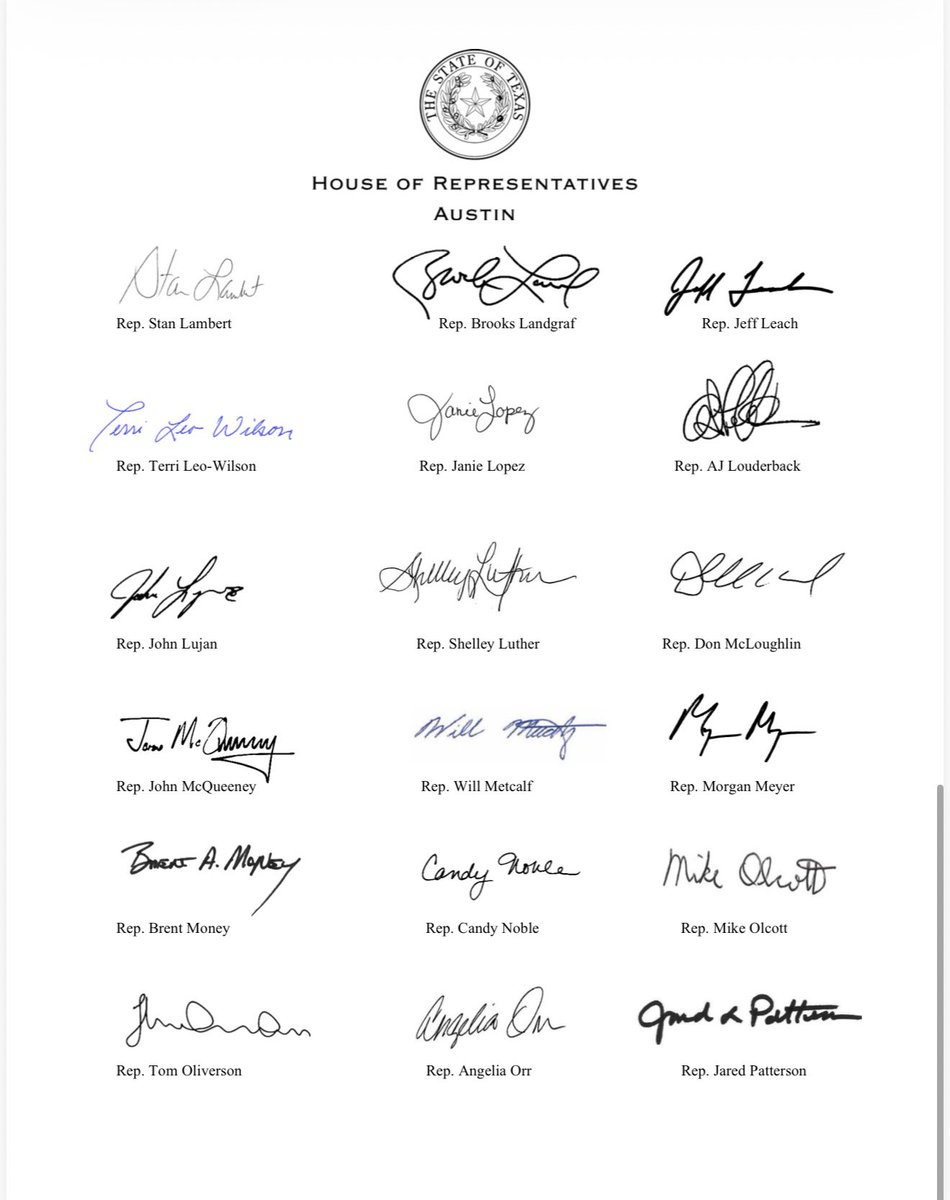 THE STATE OF TEXAS
HOUSE OF REPRESENTATIVES
AUSTIN
Stan Lambert
Jeff Leach
Rep. Stan Lambert Rep. Brooks Landgraf Rep. Jeff Leach
Terri Leo Wilson Janie Lopez
Rep. Terri Leo-Wilson Rep. Janie Lopez Rep. AJ Louderback
John Shelley Luther
Rep. John Lujan Rep. Shelley Luther Rep. Don McLoughlin
Will
Rep. John McQueeney Rep. Will Metcalf Rep. Morgan Meyer
Brent A. Money Candy Noble Mike Olcott
Rep. Brent Money Rep. Candy Noble Rep. Mike Olcott
Angelia Orr Patterson
Rep. Tom Oliverson Rep. Angelia Orr Rep. Jared Patterson